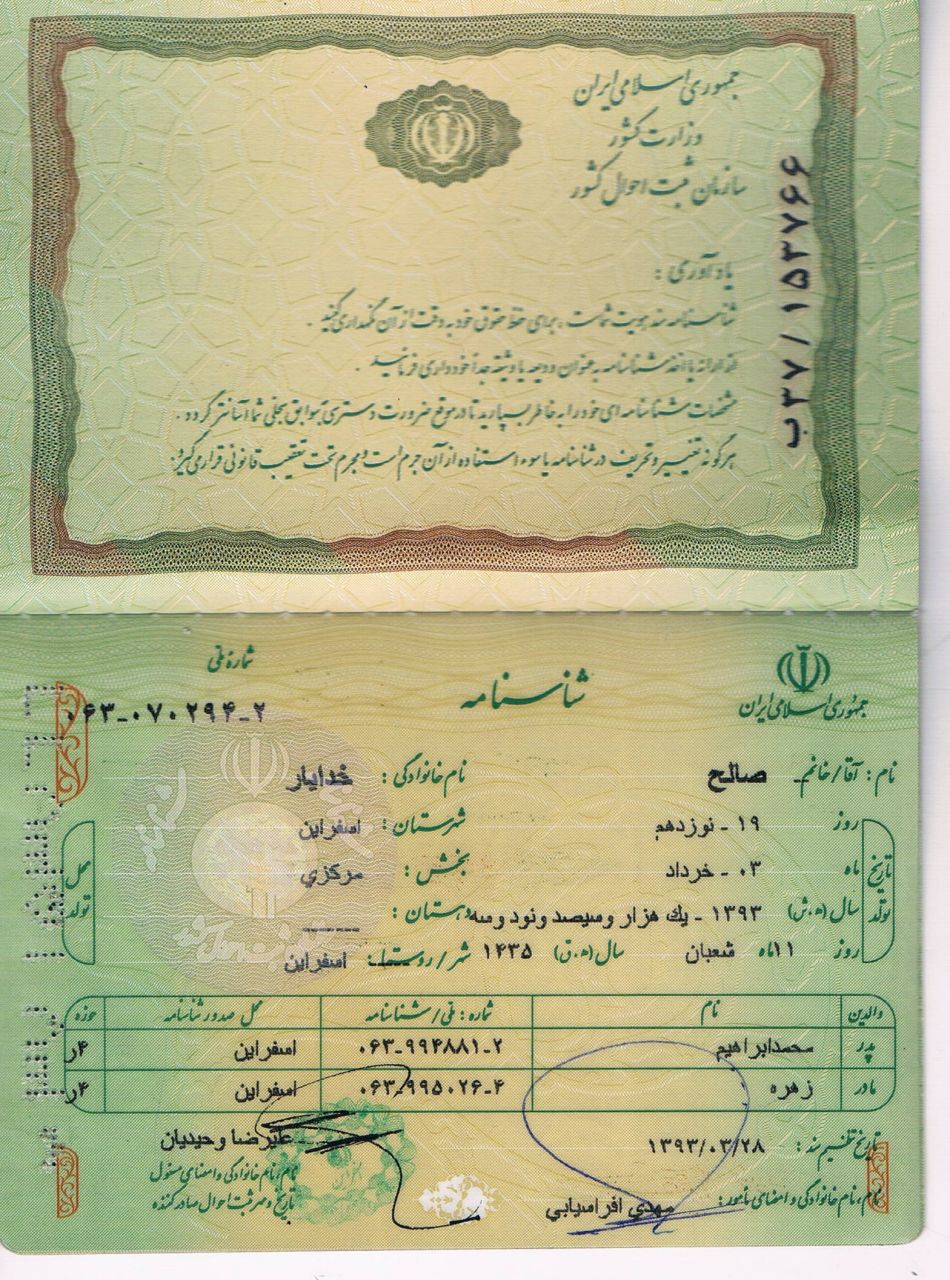 جمهوری اسلامی ایران
وزارت کشور
سازمان ثبت احوال کشور
ب۳۷/۱۵۳۷۶۶
یادآوری :
شناسنامه سند هویت شماست ، برای حفظ حقوق خود به دقت از آن نگهداری کنید .
از ارائه یا اخذ شناسنامه به عنوان ودیعه یا وثیقه جداً خودداری فرمائید .
مشخصات شناسنامه ای خود را به خاطر بسپارید تا در موقع ضرورت دسترسی به سوابق سجلی شما آسانتر گردد .
هرگونه تغییر و تحریف در شناسنامه یا سوء استفاده از آن جرم است و مجرم تحت تعقیب قانونی قرار می گیرد .
جمهوری اسلامی ایران
شناسنامه
شماره ملی
۰۶۳-۰۷۰۲۹۴-۲
نام : آقا/خانم صالح نام خانوادگی : خدایار
تاریخ تولد
روز ۱۹ - نوزدهم شهرستان : اسفراین
ماه ۰۳ - خرداد بخش : مرکزي
سال (ه.ش) ۱۳۹۳ - یك هزار وسیصد ونود وسه دهستان : -------
روز ۱۱ ماه شعبان سال (ه.ق) ۱۴۳۵ شهر/روستا : اسفراین
محل تولد
والدین نام شماره : ملی/شناسنامه محل صدور شناسنامه حوزه
پدر محمدابراهیم ۰۶۳-۹۹۴۸۸۱-۲ اسفراین ۴ر
مادر زهره ۰۶۳-۹۹۵۰۲۶-۴ اسفراین ۴ر
تاریخ تنظیم سند : ۱۳۹۳/۰۳/۲۸
علیرضا وحیدیان
نام، نام خانوادگی و امضای مأمور : مهدي افراسیابي
نام، نام خانوادگی و امضای مسئول
تاریخ و مهر ثبت احوال صادرکننده